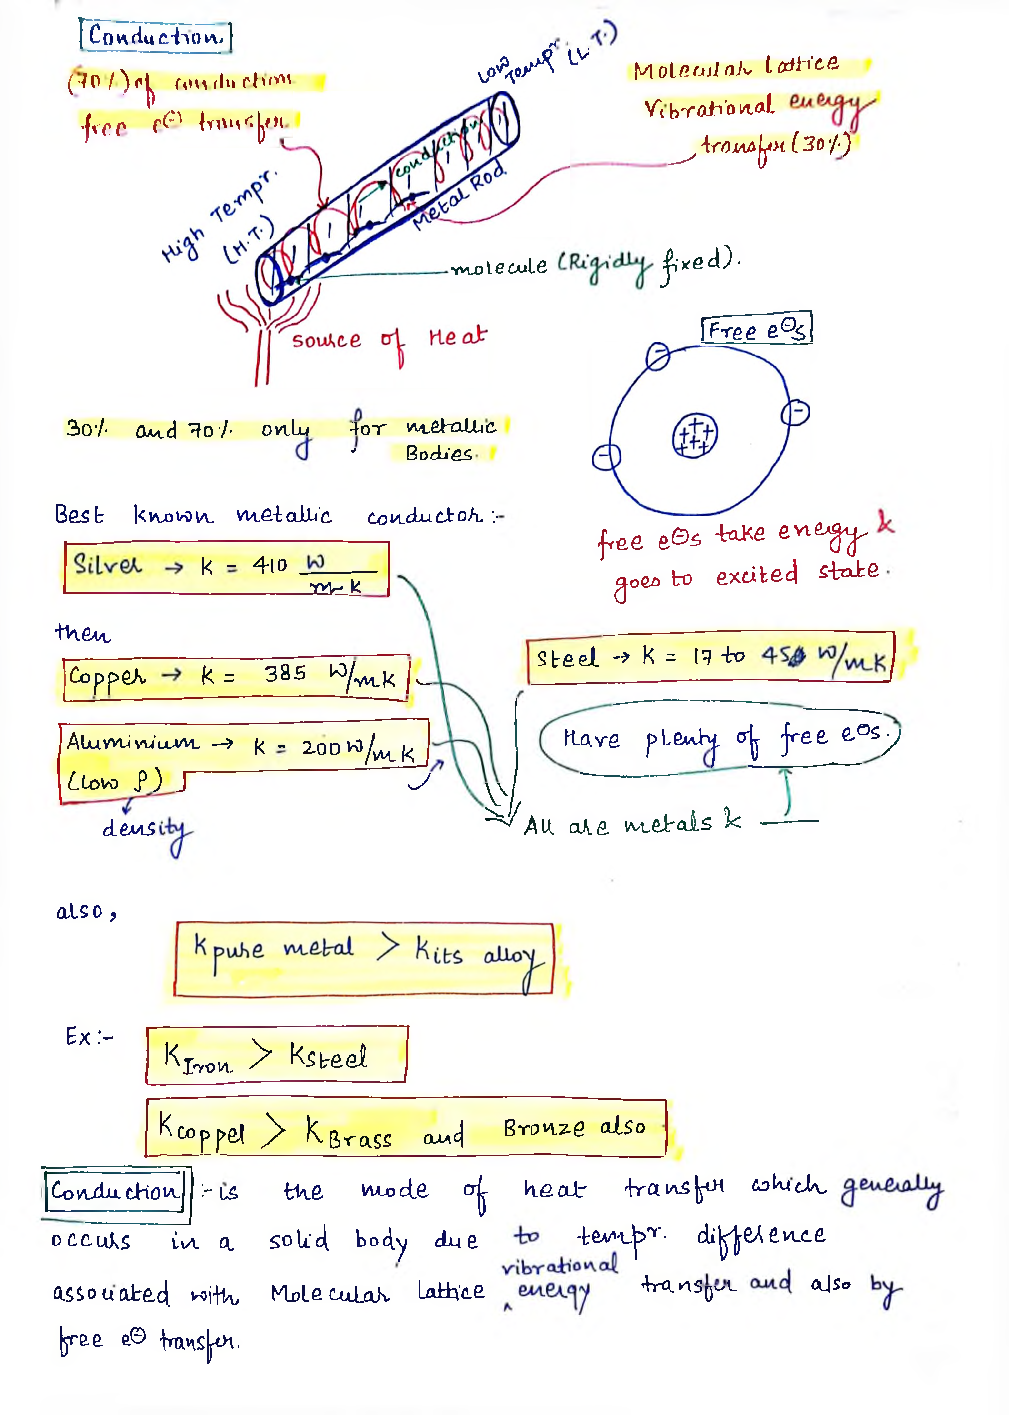 Conduction
(70%) of conduction
free e⊖ transfer
Low
Tempr. (L.T.)
Molecular lattice
Vibrational energy
transfer (30%)
High Tempr.
(H.T.)
conduction
Metal Rod
molecule (Rigidly fixed).
source of Heat
Free e⊖s
30% and 70% only for metallic
Bodies.
free e⊖s take energy &
goes to excited state.
Best known metallic conductor :-
Silver → K = 410 W/m-K
then
Copper → K = 385 W/mK
Steel → K = 17 to 45 W/mK
Aluminium → K = 200 W/mK
(Low ρ)
density
Have plenty of free e⊖s.
All are metals &
also,
K pure metal > K its alloy
Ex :-
K Iron > K Steel
K copper > K Brass and Bronze also
Conduction :- is the mode of heat transfer which generally
occurs in a solid body due to tempr. difference
associated with Molecular Lattice vibrational energy transfer and also by
free e⊖ transfer.